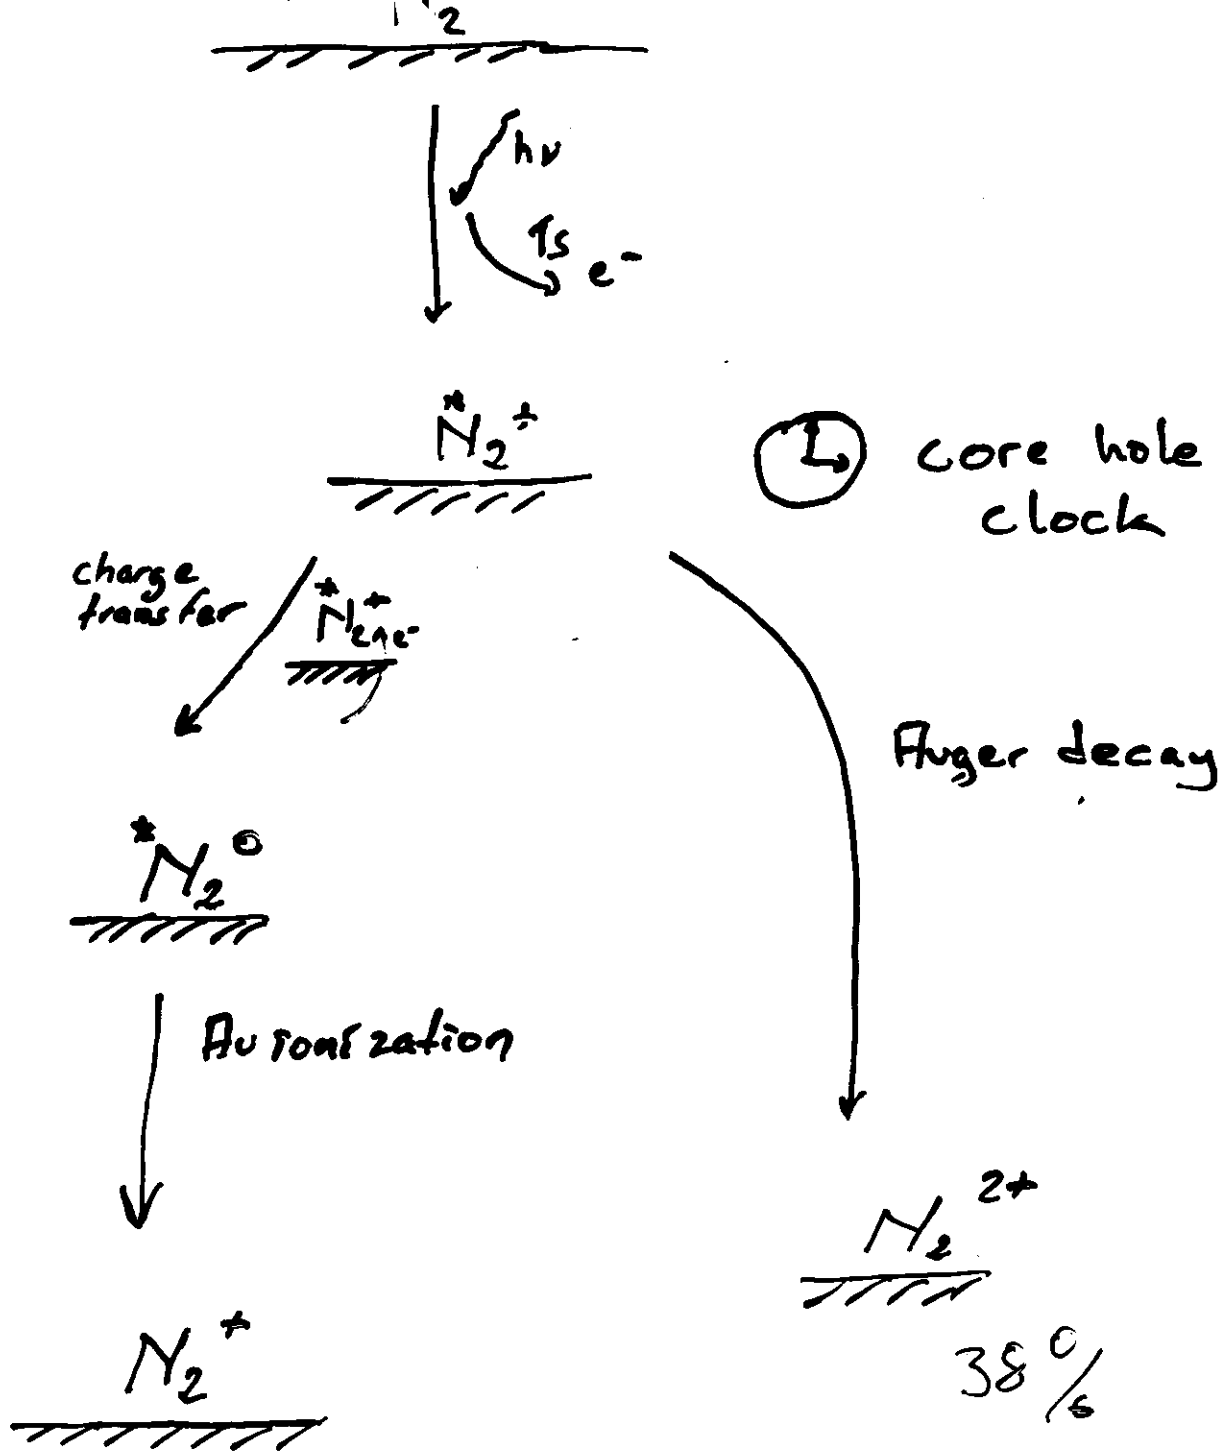 N₂
hν
1s e⁻
*N₂⁺
core hole
clock
charge
transfer
*N₂⁺ e⁻
Auger decay
*N₂⁰
Auionization
N₂²⁺
N₂⁺
38%